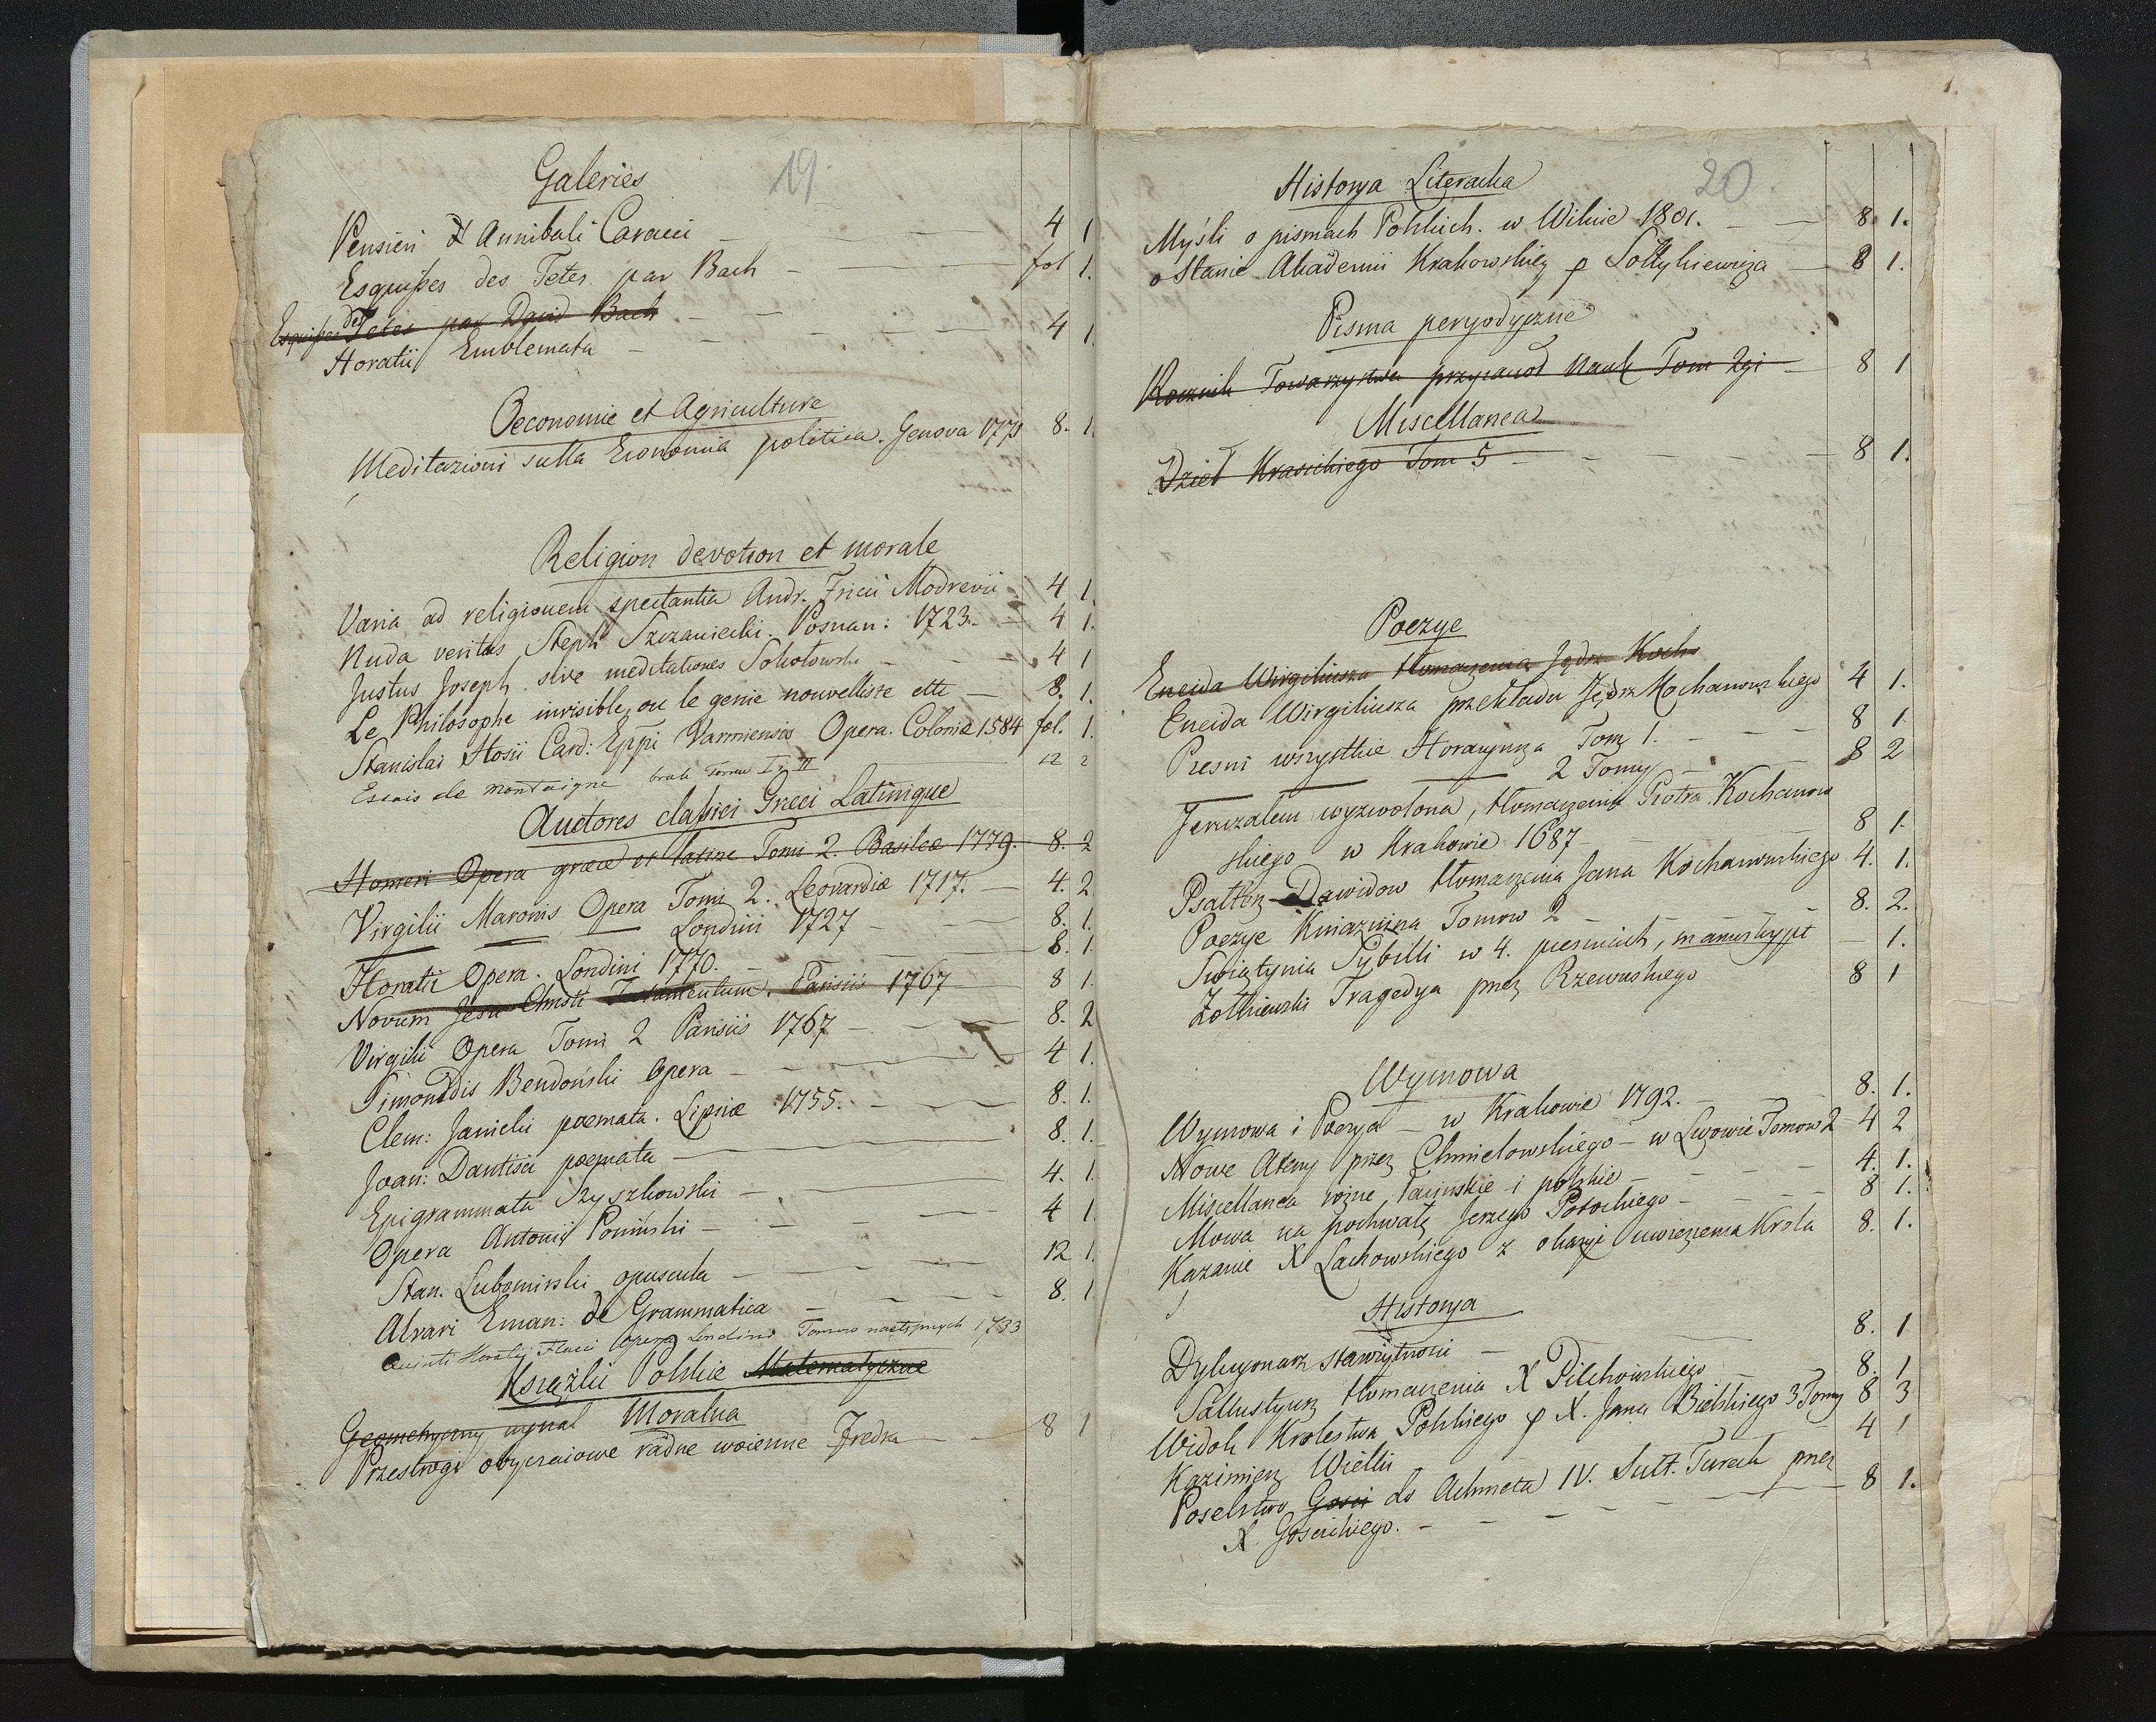 Galeries
19.
Pensieri d'Annibali Caracci 4 1
Esquisses des Tetes par Bach fol 1.
Esquisses des Tetes par David Bach
Horatii Emblemata 4 1.
Oeconomie et Agriculture
Meditazioni sulla Economia politica. Genova 1771 8. 1.
Religion devotion et morale
Varia ad religionem spectantia Andr. Fricii Modrevii 4 1.
Nuda veritas Steph Szczaniecki. Posnan: 1723. 4 1.
Justus Joseph sive meditationes Sokołowski 4 1
Le Philosophe invisible, ou le genie nouvelliste ettc 8. 1.
Stanislai Hosii Card: Eppi Varmiensis Opera. Coloniæ 1584 fol. 1.
Essais de montaigne brak Tomu I y II 12 2
Auctores classici Græci Latinique
Homeri Opera græce et latine Tomi 2. Basileæ 1779. 8. 2
Virgilii Maronis Opera Tomi 2. Leovardiæ 1717. 4. 2
Londini 1727 8. 1.
Horatii Opera. Londini 1770. 8. 1.
Novum Jesu Christi Testamentum. Parisiis 1767 8 1.
Virgilii Opera Tomi 2 Parisiis 1767 8. 2
Simonidis Bendoński Opera 4 1.
Clem: Janicki poemata. Lipsiæ 1755. 8. 1.
Joan: Dantisci poemata 8. 1.
Epigrammata Szyszkowski 4. 1.
Opera Antonij Poniński 4 1.
Stan. Lubomirski opuscula 12 1.
Alvari Eman: de Grammatica 8. 1.
Quinti Horatij Flacci Opera Londini Tomow następnych 1733
Książki Polskie Matematyczne
Geometryczny Moralna
Przestrogi obyczaiowe radne woienne Fredra 8 1
20
Historya Literacka
Myśli o pismach Polskich. w Wilnie 1801. 8. 1.
o Stanie Akademii Krakowskiey p Sołtykiewicza 8 1.
Pisma peryodyczne
Rocznik Towarzystwa przyiaciol Nauk Tom 2gi 8 1
Miscellanea
Dzieł Krasickiego Tom 5 8 1.
Poezye
Eneida Wirgiliusza tłomaczenia Jędrz. Koch
Eneida Wirgiliusza przekładu Jędrz Kochanowskiego 4 1.
Piesni wszystkie Horacyusza Tom 1. 8 1
2 Tomy 8 2
Jeruzalem wyzwolona, tłomaczenia Piotra Kochanow
skiego w Krakowie 1687 8 1.
Psałterz Dawidow tłomaczenia Jana Kochanowskiego 4. 1.
Poezye Kniaznina Tomow 2 8. 2.
Swiątynia Sybilli w 4. piesniach, manuskrypt 1.
Żołkiewski Tragedya przez Rzewuskiego 8 1
Wymowa
Wymowa i Poezya w Krakowie 1792. 8. 1.
Nowe Ateny przez Chmielowskiego w Lwowie Tomow 2 4 2
Miscellanea rożne, łacinskie i polskie 4. 1.
Mowa na pochwałę Jerzego Potockiego 8 1.
Kazanie X Lachowskiego z okazyi uwięzienia Krola 8. 1.
Historya
Dykcyonarz starożytności 8. 1
Sallustyusz tłomaczenia X Pilchowskiego 8. 1
Widok Krolestwa Polskiego p X. Jana Bielskiego 3 Tomy 8 3
Kazimierz Wielki 4 1
Poselstwo Gosci do Achmeta IV. Sułt. Tureck przez
X. Goscickiego. 8 1.